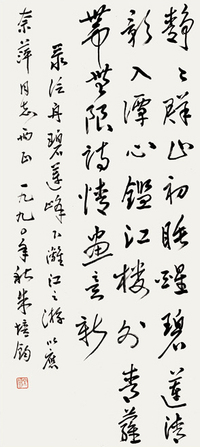 静〻群山初睡醒碧莲清
影入潭心鑑江楼外青萝
带無限诗情画意新
录泛舟碧莲峰下漓江之游以应
奈萍同志正一九九〇年秋朱培钧